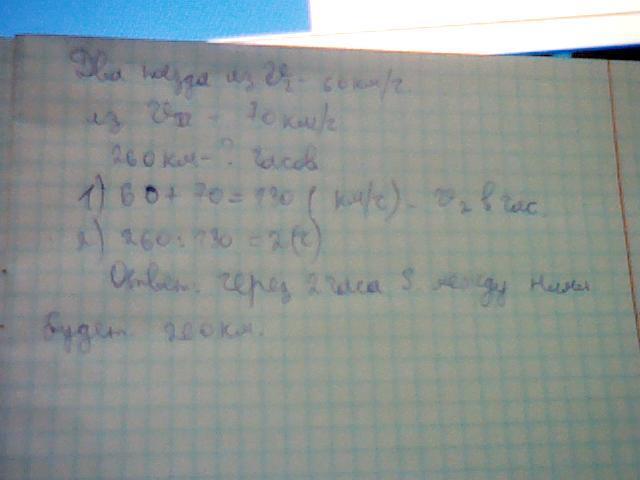 Два поезда из V₁ - 60км/ч.
из V₂ - 70 км/ч
260 км - ? часов
1) 60 + 70 = 130 ( км/ч) - V₂ в час.
2) 260 : 130 = 2(ч)
Ответ. через 2 часа S между ними
будет 260 км.